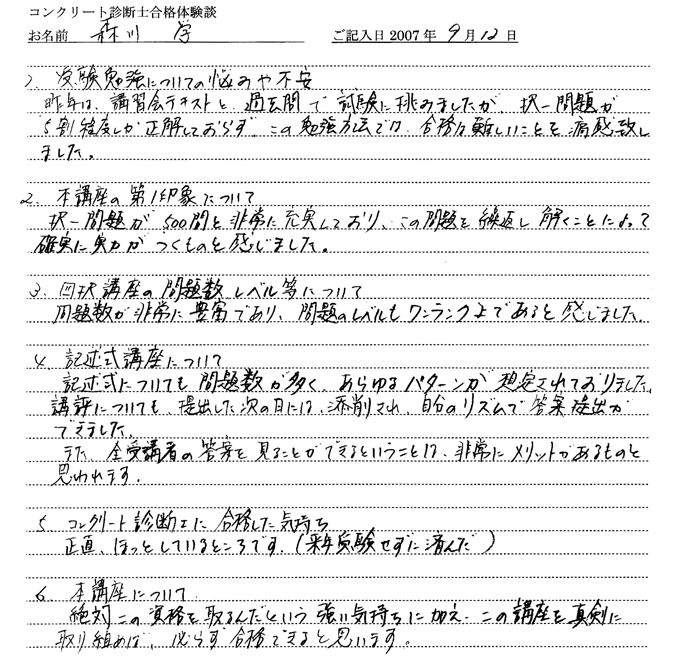 コンクリート診断士合格体験談
お名前 森川 学 ご記入日2007年9月12日
1、受験勉強についての悩みや不安
昨年は、講習会テキストと過去問で試験に挑みましたが、択一問題が
5割程度しか正解しておらず、この勉強方法では、合格は難しいことを痛感致し
ました。
2、本講座の第1印象について
択一問題が500問と非常に充実しており、この問題を繰返し解くことによって
確実に実力がつくものと感じました。
3、四択講座の問題数レベル等について
問題数が非常に豊富であり、問題のレベルもワンランク上であると感じました。
4、記述式講座について
記述式についても問題数が多く、あらゆるパターンが想定されておりました。
講評についても、提出した次の日には、添削され、自分のリズムで答案提出が
できました。
また、全受講者の答案を見ることができるということは、非常にメリットがあるものと
思われます。
5 コンクリート診断士に合格した気持ち
正直、ほっとしているところです。(来年受験せずに済んだ)
6 本講座について
絶対この資格を取るんだという強い気持ちに加え、この講座を真剣に
取り組めば、必らず合格できると思います。